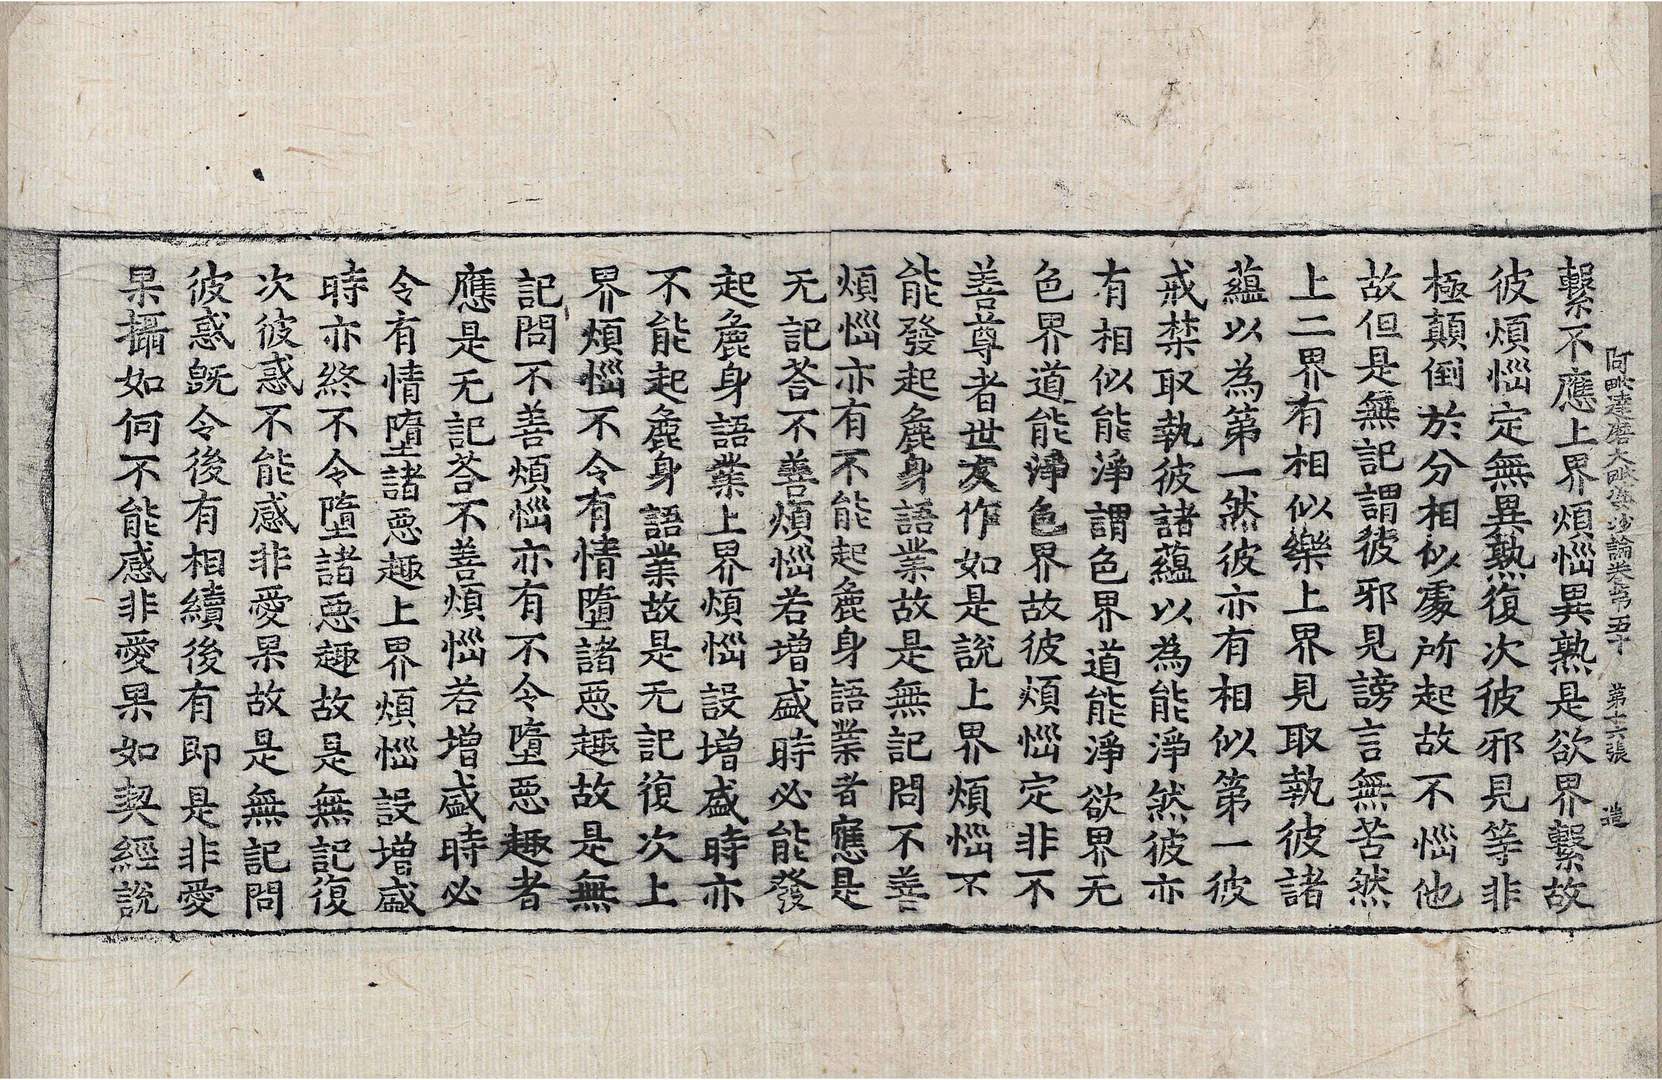 阿毗達磨大毗婆沙論卷第五十 第十六張 造
繫不應上界煩惱異熟是欲界繫故
彼煩惱定無異熟復次彼邪見等非
極顛倒於分相似處所起故不惱他
故但是無記謂彼邪見謗言無苦然
上二界有相似樂上界見取執彼諸
蘊以為第一然彼亦有相似第一彼
戒禁取執彼諸蘊以為能淨然彼亦
有相似能淨謂色界道能淨欲界无
色界道能淨色界故彼煩惱定非不
善尊者世友作如是說上界煩惱不
能發起麁身語業故是無記問不善
煩惱亦有不能起麁身語業者應是
无記荅不善煩惱若增盛時必能發
起麁身語業上界煩惱設增盛時亦
不能起麁身語業故是无記復次上
界煩惱不令有情墮諸惡趣故是無
記問不善煩惱亦有不令墮惡趣者
應是无記荅不善煩惱若增盛時必
令有情墮諸惡趣上界煩惱設增盛
時亦終不令墮諸惡趣故是無記復
次彼惑不能感非愛果故是無記問
彼惑旣令後有相續後有即是非愛
果攝如何不能感非愛果如契經說